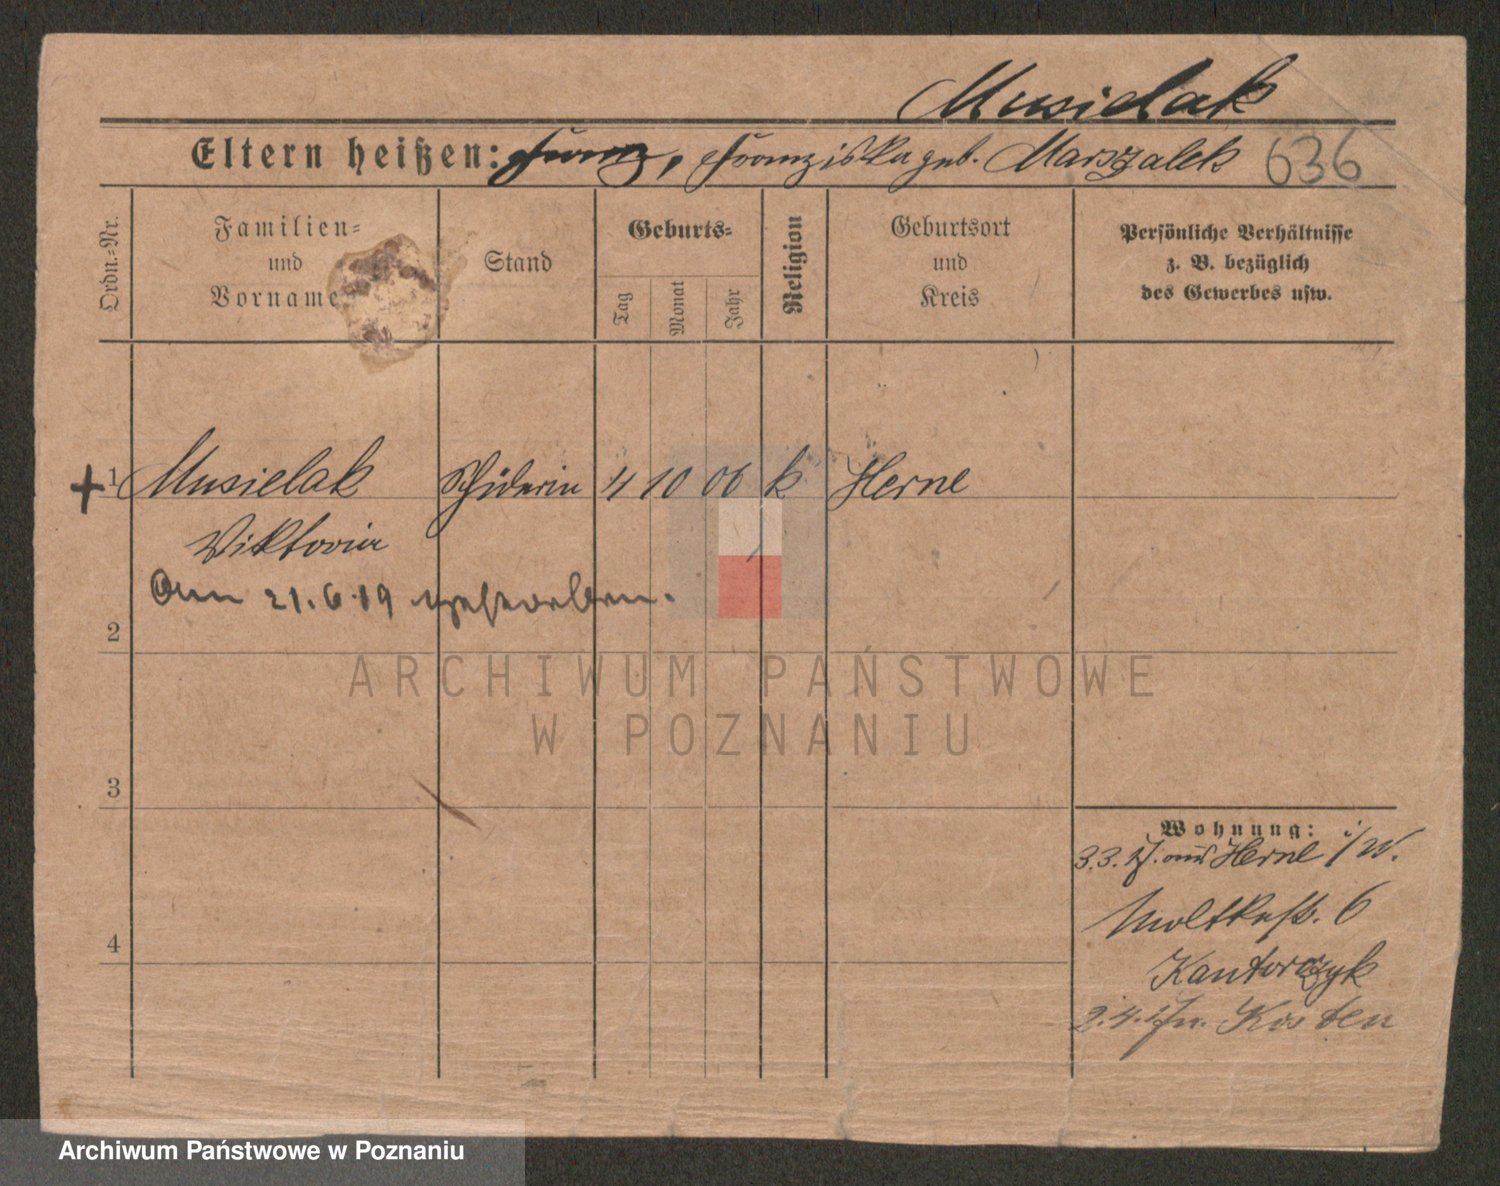 Musielak
Eltern heißen: Franz, Franziska geb. Marszalek 636
Ordn.-Nr.
Familien-
und
Vorname
Stand
Geburts-
Tag
Monat
Jahr
Religion
Geburtsort
und
Kreis
Persönliche Verhältnisse
z. B. bezüglich
des Gewerbes usw.
+ 1 Musielak 4 10 06 k Herne
Viktoria
Am 21.6.19 gestorben.
2
3
4
Wohnung:
3.3.17. aus Herne i/W.
Moltkestr. 6
Kantorczyk
2.4.17 n. Kosten
ARCHIWUM PAŃSTWOWE
W POZNANIU
Archiwum Państwowe w Poznaniu